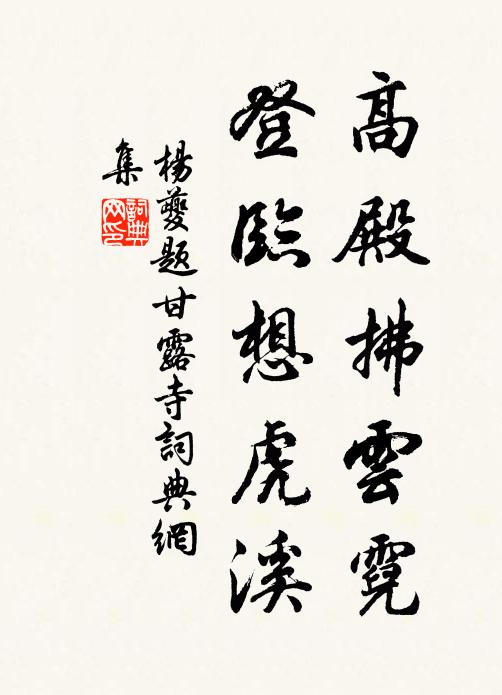 高殿拂雲霓
登臨想虎溪
楊夔題甘露寺詞典網
集
詞典
网印